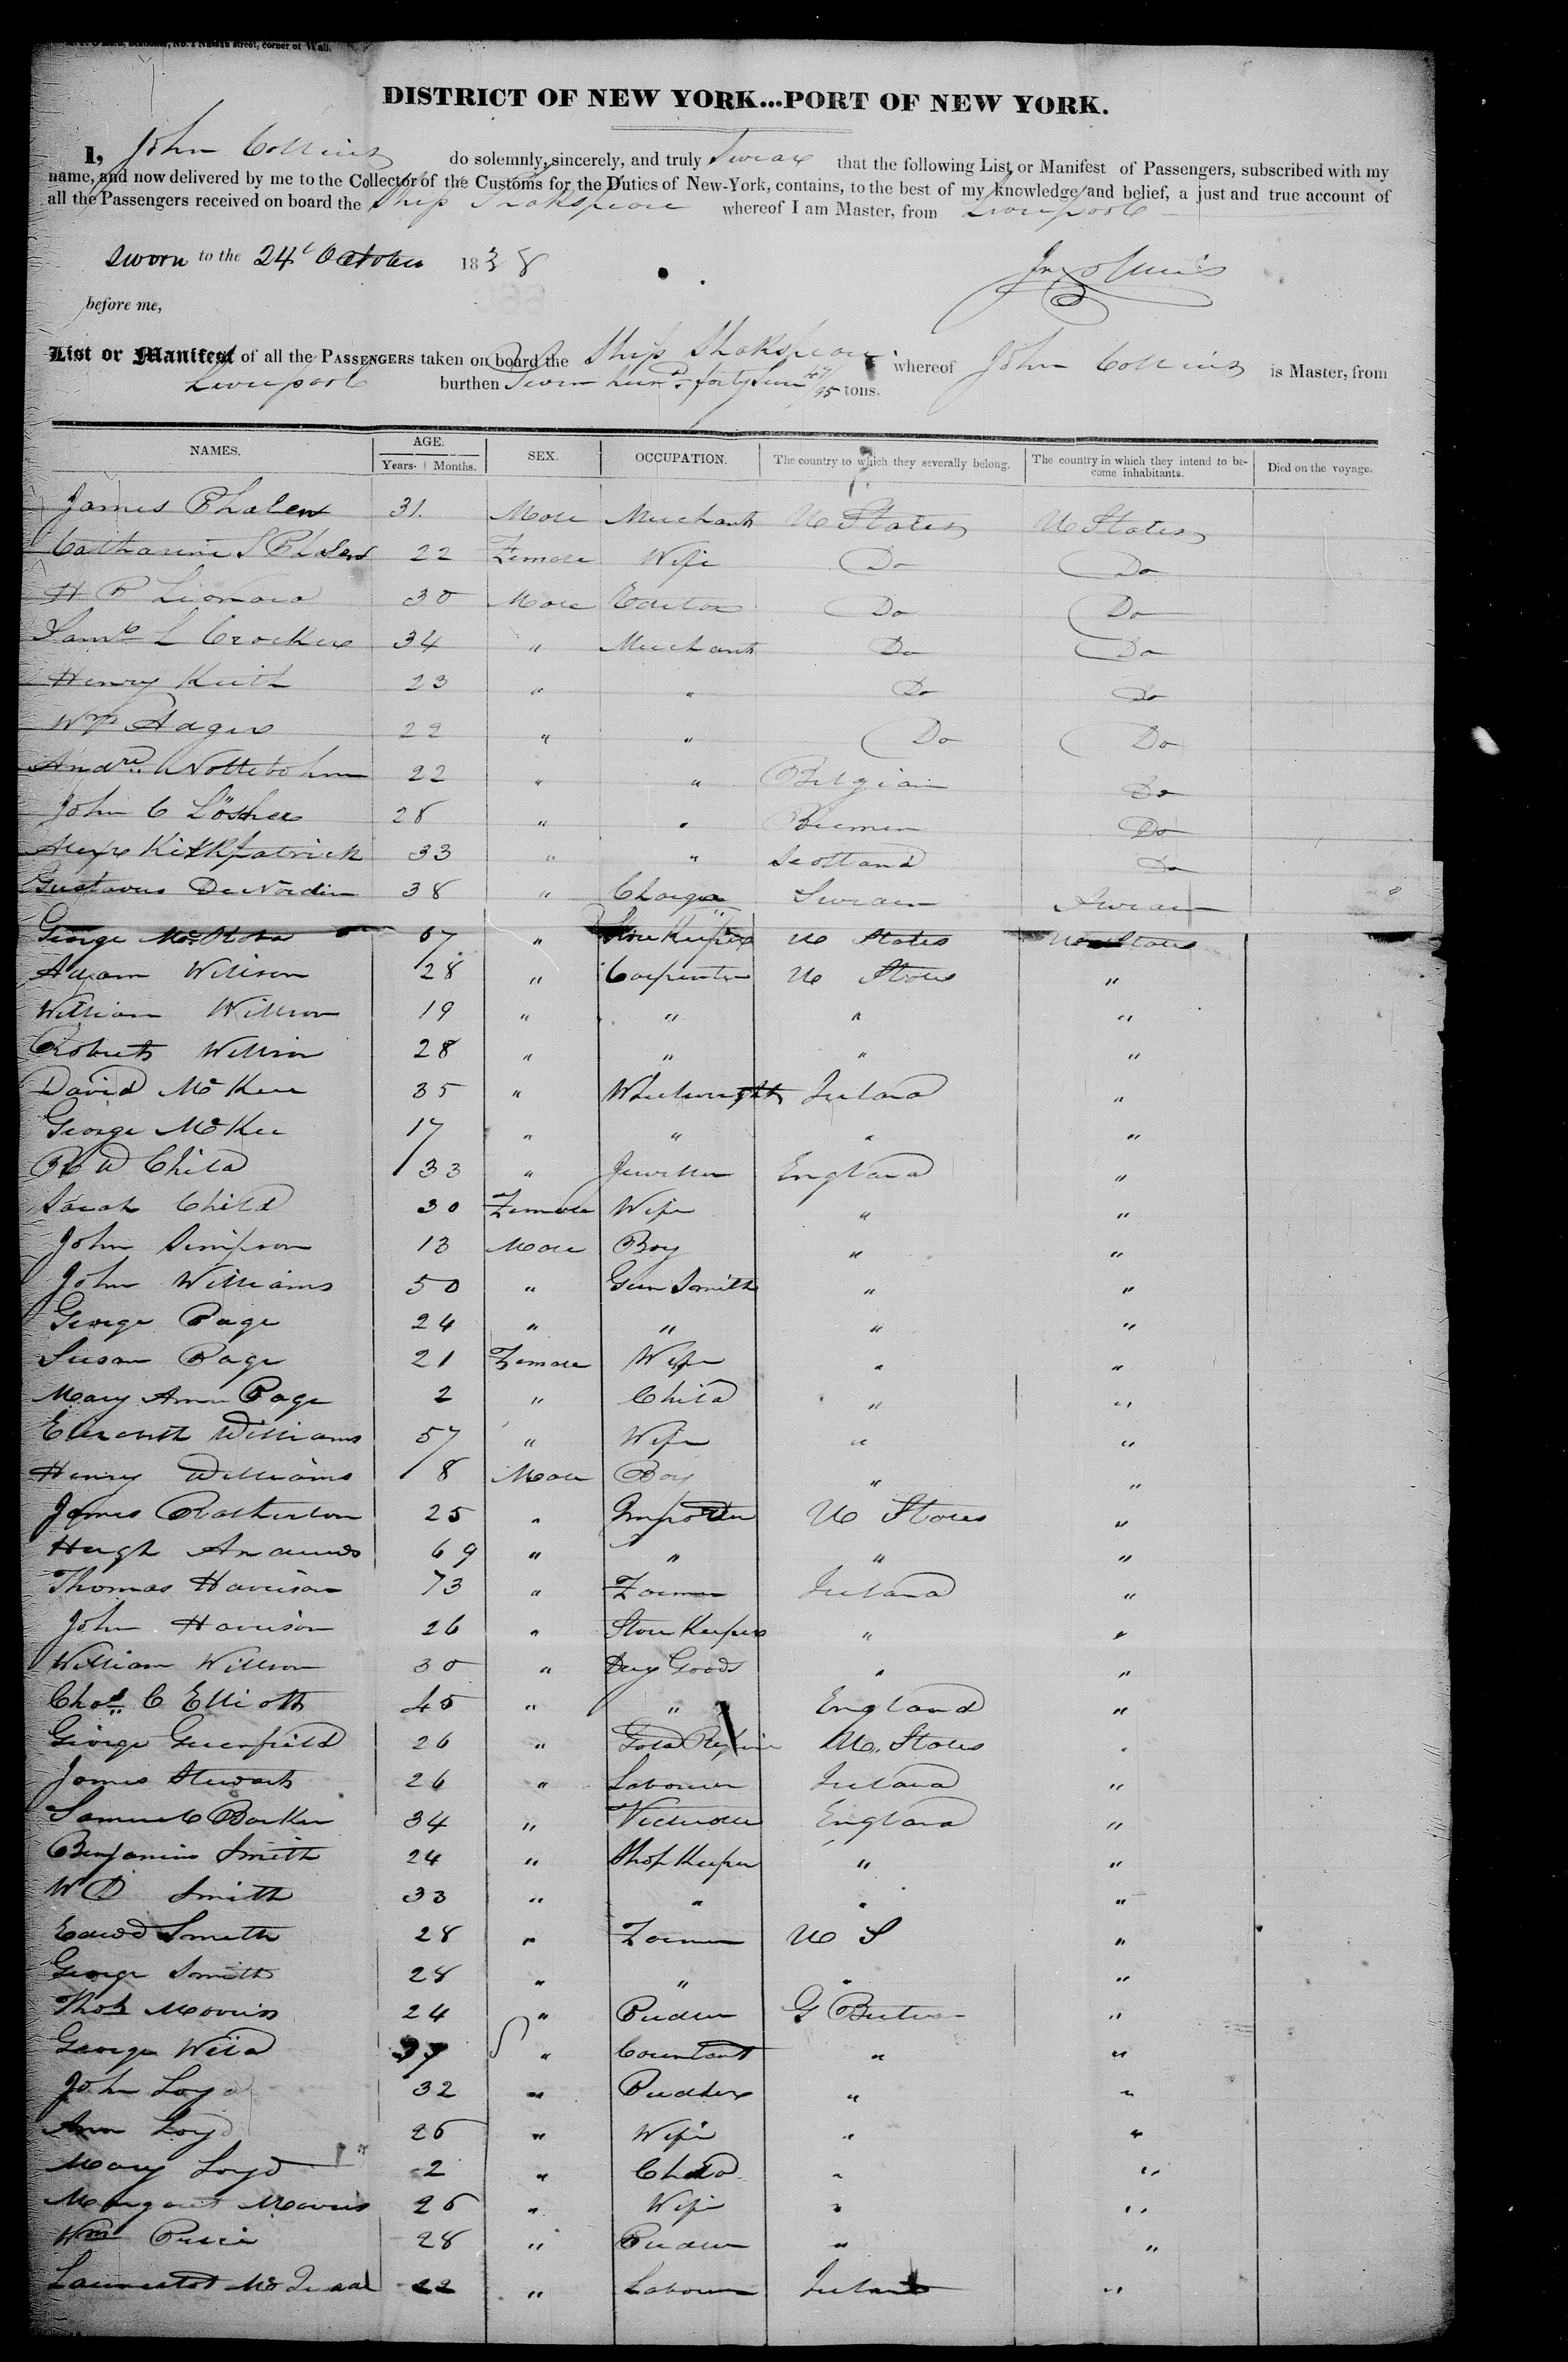 Stationer, No. 2 Nassau street, corner of Wall.
DISTRICT OF NEW YORK...PORT OF NEW YORK.
I, John Collins do solemnly, sincerely, and truly Swear that the following List or Manifest of Passengers, subscribed with my
name, and now delivered by me to the Collector of the Customs for the Duties of New-York, contains, to the best of my knowledge and belief, a just and true account of
all the Passengers received on board the Ship Shakspeare whereof I am Master, from Liverpool
Sworn to the 24 October 1838
Jno Collins
before me,
List or Manifest of all the PASSENGERS taken on board the Ship Shakspeare whereof John Collins is Master, from
Liverpool burthen Seven hund forty Seven 47/95 tons.
NAMES. AGE. SEX. OCCUPATION. The country to which they severally belong. The country in which they intend to become inhabitants. Died on the voyage.
Years. Months.
James Phalen 31. Male Merchant U States U States
Catharine S Phalen 22 Female Wife Do Do
H P Leonard 30 Male Editor Do Do
Saml L Crocker 34 " Merchant Do Do
Henry Keith 23 " " Do Do
Wm Hager 22 " " Do Do
Andre Nottebohm 22 " " Belgian Do
John C Löscher 28 " " Bremen Do
Alexr Kirkpatrick 33 " " Scotland Do
Gustavus De Nordin 38 " Charge Sweden Sweden
George 67 " Store Keeper U States U States
Adam Willson 28 " Carpenter U States "
William Willson 19 " " " "
Robert Willson 28 " " " "
David McKee 35 " Wheelwright Ireland "
George McKee 17 " " " "
R W Child 33 " Jeweller England "
Sarah Child 30 Female Wife " "
John Simpson 13 Male Boy " "
John Williams 50 " Gun Smith " "
George Page 24 " " " "
Susan Page 21 Female Wife " "
Mary Ann Page 2 " Child " "
Elizabeth Williams 57 " Wife " "
Henry Williams 8 Male Boy " "
James Rotherton 25 " Importer U States "
Hugh Andrews 69 " " " "
Thomas Harrison 73 " Farmer Ireland "
John Harrison 26 " Store Keeper " "
William Willson 30 " Dry Goods " "
Chas C Elliott 45 " " England "
George Greenfield 26 " Gold Refiner U. States "
James Stewart 26 " Labourer Ireland "
Samuel Barker 34 " Victualler England "
Benjamin Smith 24 " Shop Keeper " "
W D Smith 33 " " " "
Edwd Smith 28 " Farmer U S "
George Smith 28 " " " "
Thos Morriss 24 " Pudler G Britain "
George Wild 37 " Countant " "
John Loyd 32 " Pudler " "
Ann Loyd 26 " Wife " "
Mary Loyd 2 " Child " "
Margaret Morris 26 " Wife " "
Wm Price 28 " Pudler " "
22 " Labourer Ireland "